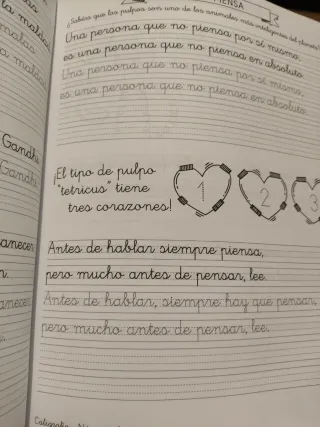 PIENSA
¿Sabías que los pulpos son uno de los animales más inteligentes del planeta?
Una persona que no piensa por sí misma,
es una persona que no piensa en absoluto.
Una persona que no piensa por sí misma,
es una persona que no piensa en absoluto.
Gandhi
Gandhi
¡El tipo de pulpo
"tetricus" tiene
tres corazones!
1
2
3
Antes de hablar siempre piensa,
pero mucho antes de pensar, lee.
Antes de hablar, siempre hay que pensar,
pero mucho antes de pensar, lee.